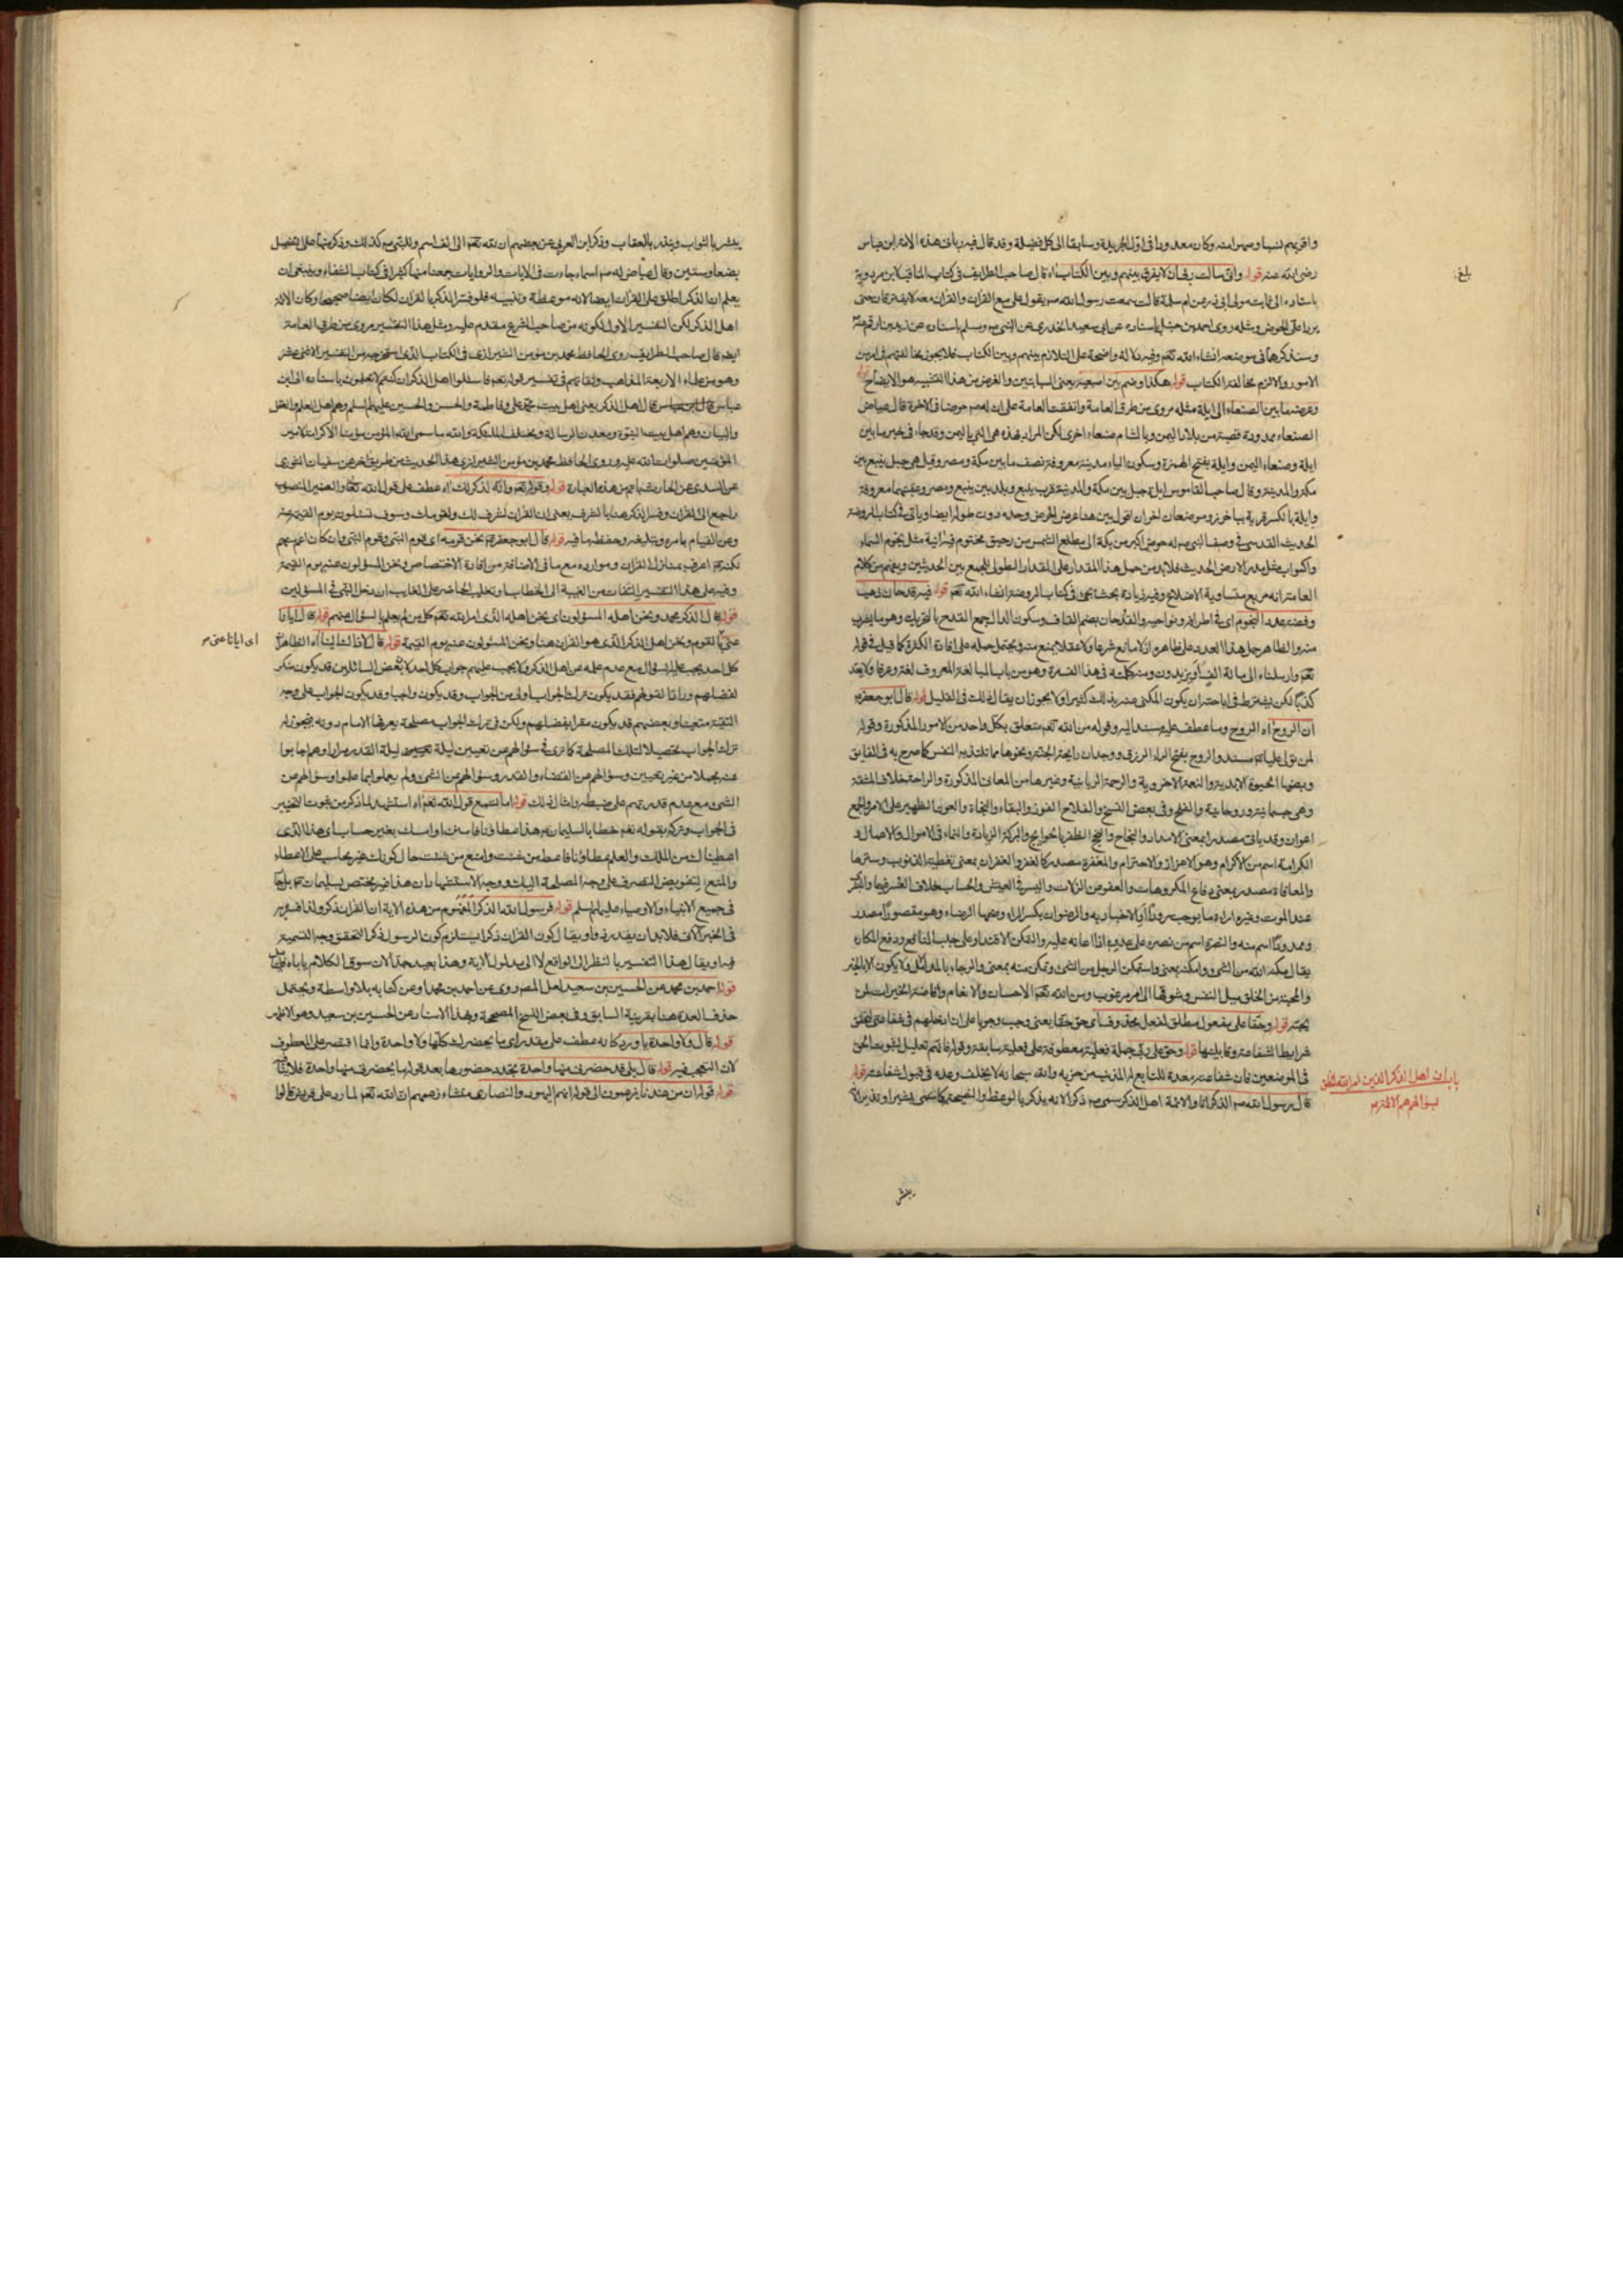 واقربهم نسبا وسهم امنه وكان معدودا فى اول الجريدة وسابقا الى كل فضيلة وقد قال فيه ربانى هذه الامة ابن عباس
رضى الله عنه قوله وانى سالت ربى ان لا يفرق بينهم وبين الكتاب اه قال صاحب الطرايف فى كتاب المناقب لابن مردوية
باسناده الى ثابت مولى ابى ذر عن ام سلمة قالت سمعت رسول الله ص يقول على مع القران والقران معه لا يفترقان حتى
يردا على الحوض ومثله روى احمد بن حنبل باسناده عن ابى سعيد الخدرى عن النبى ص وسلم باسناده عن زيد بن ارقم
وسنذكرها فى موضعه انشاء الله تعم وفيه دلالة واضحة على التلازم بينهم وبين الكتاب فلا يجوز مخالفتهم فى امر من
الامور والا لزم مخالفة الكتاب قوله هكذا وضم بين اصبعيه يعنى السبابتين والغرض من هذا التشبيه هو الايضاح قوله
وعرضه ما بين الصنعاء الى ايلة مثله مروى من طرق العامة واتفقت العامة على ان له ص حوضا فى الاخرة قال عياض
الصنعاء ممدودة قصبة من بلاد اليمن وبالشام صنعاء اخرى لكن المراد بهذه هى التى باليمن وقد جاء فى خبر ما بين
ايلة وصنعاء اليمن وايلة بفتح الهمزة وسكون الياء مدينة معروفة نصف ما بين مكة ومصر وقيل هى جبل ينبع بين
مكة والمدينة وقال صاحب القاموس ايلة جبل بين مكة والمدينة قرب ينبع وبلد بين ينبع ومصر وعقبتها معروفة
وايلة بالكسر قرية بباخرز وموضعان اخران اقول بين هنا عرض الحوض وحده دون طوله ايضا وياتى فى كتاب الروضة
الحديث القدسى فى وصف النبى ص له حوض اكبر من بكة الى مطلع الشمس من رحيق مختوم فيه انية مثل نجوم السماء
واكواب مثل مدر الارض الحديث فلا بد من حمل هذا المقدار على المقدار الطولى للجمع بين الحديثين ويفهم من كلام
العامة انه مربع متساوية الاضلاع وفيه زيادة بحث يجئ فى كتاب الروضة انشاء الله تعم قوله فيه قدحان ذهب
وفضة عدد النجوم اى فى اطرافه ونواحيه والقدحان بضم القاف وسكون الدال جمع القدح بالتحريك وهو ما يشرب
منه والظاهر حمل هذا العدد على ظاهره اذ لا مانع شرعا ولا عقلا يمنع منه ويحتمل حمله على افادة الكثرة كما قيل فى قوله
تعم وارسلناه الى مائة الف او يزيدون ومنه كلمته فى هذا الف مرة وهو من باب المبالغة المعروف لغة وعرفا ولا يعد
كذبا لكن يشترط فى اباحته ان يكون المكنى عنه بذلك كثيرا ولا يجوز ان يقال ذلك فى القليل قوله قال ابو جعفر ع
ان الروح اه الروح وما عطف عليه مسند اليه وقوله من الله تعم متعلق بكل واحد من الامور المذكورة وقوله
لمن تولى عليا ع مسند والروح بفتح الراء الرزق ووجدان رايحة الجنة ونحوها مما تلتذ به النفس كما صرح به فى الفايق
وبضمها الحيوة الابدية والنعمة الاخروية والرحمة الربانية وغيرها من المعانى المذكورة والراحة خلاف المشقة
وهى جسمانية وروحانية والفلح وفى بعض النسخ والفلاح الفوز والبقاء والنجاة والعون الظهير على الامر والجمع
اعوان وقد ياتى مصدرا بمعنى الامداد والنجاح والنجح الظفر بالحوايج والبركة الزيادة والنماء فى الاموال والاعمال و
الكرامة اسم من الاكرام وهو الاعزاز والاحترام والمغفرة مصدر كالغفر والغفران بمعنى تغطية الذنوب وسترها
والمعافاة مصدر بمعنى دفاع المكروهات والعفو عن الزلات واليسر فى العيش والحساب خلاف العسر فيهما والبشرى
عند الموت وغيره اراءة ما يوجب سرورا او الاخبار به والرضوان بكسر الراء وضمها الرضاء وهو مقصورا مصدر
وممدودا اسم منه والنصرة اسم من نصره على عدوه اذا اعانه عليه والتمكن الاقتدار على جلب المنافع ودفع المكاره
يقال مكنه الله من الشئ وامكنه بمعنى واستمكن الرجل من الشئ وتمكن منه بمعنى والرجاء بالمد الامل ولا يكون الا بالخير
والمحبة من الخلق ميل النفس وشوقها الى امر مرغوب ومن الله تعم الاحسان والانعام وافاضة الخيرات لمن
يحبه قوله وحقا على مفعول مطلق لفعل محذوف اى حق حقا يعنى وجب وجوبا على ان ادخلهم فى شفاعتى لتحقق
شرايط الشفاعة وقابليتها قوله وحق على ربى جملة فعلية معطوفة على فعلية سابقة وقوله فانهم تعليل لثبوت الحق
فى الموضعين فان شفاعته معدة للتابع له المذنب من حزبه والله سبحانه لا يخلف وعده فى قبول شفاعته قوله
قال رسول الله ص الذكر انا والائمة اهل الذكر سمى ص ذكرا لانه يذكر بالوعظ والنصيحة كما سمى بشيرا ونذيرا لانه
بلغ
باب ان اهل الذكر الذين امر الله الخلق
بسؤالهم هم الائمة ع
يبشر
يبشر بالثواب وينذر بالعقاب وذكر ابن العربى عن بعضهم ان لله تعم الف اسم وللنبى ص كذلك وذكر منها على التفصيل
بضعا وستين وقال عياض له ص اسماء جاءت فى الايات والروايات جمعنا منها كثيرا فى كتاب الشفاء وينبغى ان
يعلم ان الذكر اطلق على القران ايضا لانه موعظة وتنبيه فلو فسر الذكر بالقران لكان ايضا صحيحا وكان الائمة
اهل الذكر لكن التفسير الاول لكونه من صاحب الشرع مقدم عليه ومثل هذا التفسير مروى من طرق العامة
ايضا قال صاحب الطرايف روى الحافظ محمد بن مؤمن الشيرازى فى الكتاب الذى استخرجه من التفسير الاثنى عشر
وهو من علماء الاربعة المذاهب وثقاتهم فى تفسير قوله تعم فاسئلوا اهل الذكر ان كنتم لا تعلمون باسناده الى ابن
عباس قال اهل الذكر يعنى اهل بيت محمد على وفاطمة والحسن والحسين عليهم السلم وهم اهل العلم والعقل
والبيان وهم اهل بيت النبوة ومعدن الرسالة ومختلف الملائكة والله ما سمى الله المؤمن مؤمنا الا كرامة لامير
المؤمنين صلوات الله عليه وروى الحافظ محمد بن مؤمن الشيرازى هذا الحديث من طريق اخر عن سفيان الثورى
عن السدى عن الحارث باتم من هذه العبارة قوله وقوله تعم وانه لذكر لك اه عطف على قول الله تعالى والضمير المنصوب
راجع الى القران وفسر الذكر هنا بالشرف يعنى ان القران لشرف لك ولقومك وسوف تسئلون يوم القيمة عنه
وعن القيام بامره وتبليغه وحفظ ما فيه قوله قال ابو جعفر ع نحن قومه اى قوم النبى وقوم النبى وان كان اعم منهم
لكنهم اعرف بمنازل القران وموارده مع ما فى الاضافة من افادة الاختصاص ونحن المسؤلون عنه يوم القيمة
وفيه على هذا التفسير التفات من الغيبة الى الخطاب او تغليب الحاضر على الغايب ان دخل النبى فى المسؤلين
قوله قال الذكر محمد ونحن اهله المسؤلون اى نحن اهله الذى امر الله تعم كل من لم يعلم بالسؤال عنهم قوله قال ايانا
عنى بالقوم ونحن اهل الذكر الذى هو القران هنا ونحن المسؤلون عنه يوم القيمة قوله قال لا ذاك الينا اه الظاهر ان
كل احد يجب عليه السؤال مع عدم علمه عن اهل الذكر ولا يجب عليهم جواب كل احد لان بعض السائلين قد يكون منكر
لفضلهم ورادا لقولهم فقد يكون ترك الجواب اولى من الجواب وقد يكون واجبا وقد يكون الجواب على وجه
التقية متعينا وبعضهم قد يكون مقرا بفضلهم ولكن فى ترك الجواب مصلحة يعرفها الامام دونه فيجوز له
ترك الجواب تحصيلا لتلك المصلحة كما ترى فى سؤالهم عن تعيين ليلة القدر مرارا وهم اجابوا
عنه مجملا من غير تعيين وسؤالهم عن القضاء والقدر وسؤالهم عن الشئ ولم يعملوا بما علموا وسؤالهم عن
الشئ مع عدم قدرتهم على ضبطه وامثال ذلك قوله اما تسمع قول الله تعم اه استشهد لما ذكر من ثبوت التخيير
فى الجواب وتركه بقوله تعم خطابا لسليمان ع هذا عطاؤنا فامنن او امسك بغير حساب اى هذا الذى
اعطيناك من الملك والعلم عطاؤنا فاعط من شئت وامنع من شئت حال كونك غير محاسب على الاعطاء
والمنع لتفويض التصرف على وجه المصلحة اليك ووجه الاستشهاد ان هذا غير مختص بسليمان ع بل جار
فى جميع الانبياء والاوصياء عليهم السلم قوله فرسول الله الذكر المفهوم من هذه الاية ان القران ذكر ولذا فسر به
فى الخبر الاتى فلا بد ان يقدر ذو او يقال كون القران ذكرا يستلزم كون الرسول ذكرا لتحقق وجه التسمية
فيه او يقال هذا التفسير بالنظر الى الواقع لا الى مدلول الاية وهذا بعيد جدا لان سوق الكلام ياباه فليتامل
قوله احمد بن محمد عن الحسين بن سعيد لعل المص روى عن احمد بن محمد او عن كتابه بلا واسطة ويحتمل
حذف العدة هنا بقرينة السابق وفى بعض النسخ المصححة وبهذا الاسناد عن الحسين بن سعيد وهو الاظهر
قوله قال ولا واحدة يا ورد كانه عطف على مقدر اى ما يحضرك كلها ولا واحدة وانما اقتصر على المعطوف
لان التعجب فيه قوله قال بلى قد حضرنى منها واحدة تجدد حضورها بعد قوله ما يحضرنى منها واحدة فلا ينافى
قوله قوله ان من عندنا يزعمون الى قوله انهم اليهود والنصارى منشاء زعمهم ان الله تعم لما رد على قريش قالوا
اى ايانا عنى ص